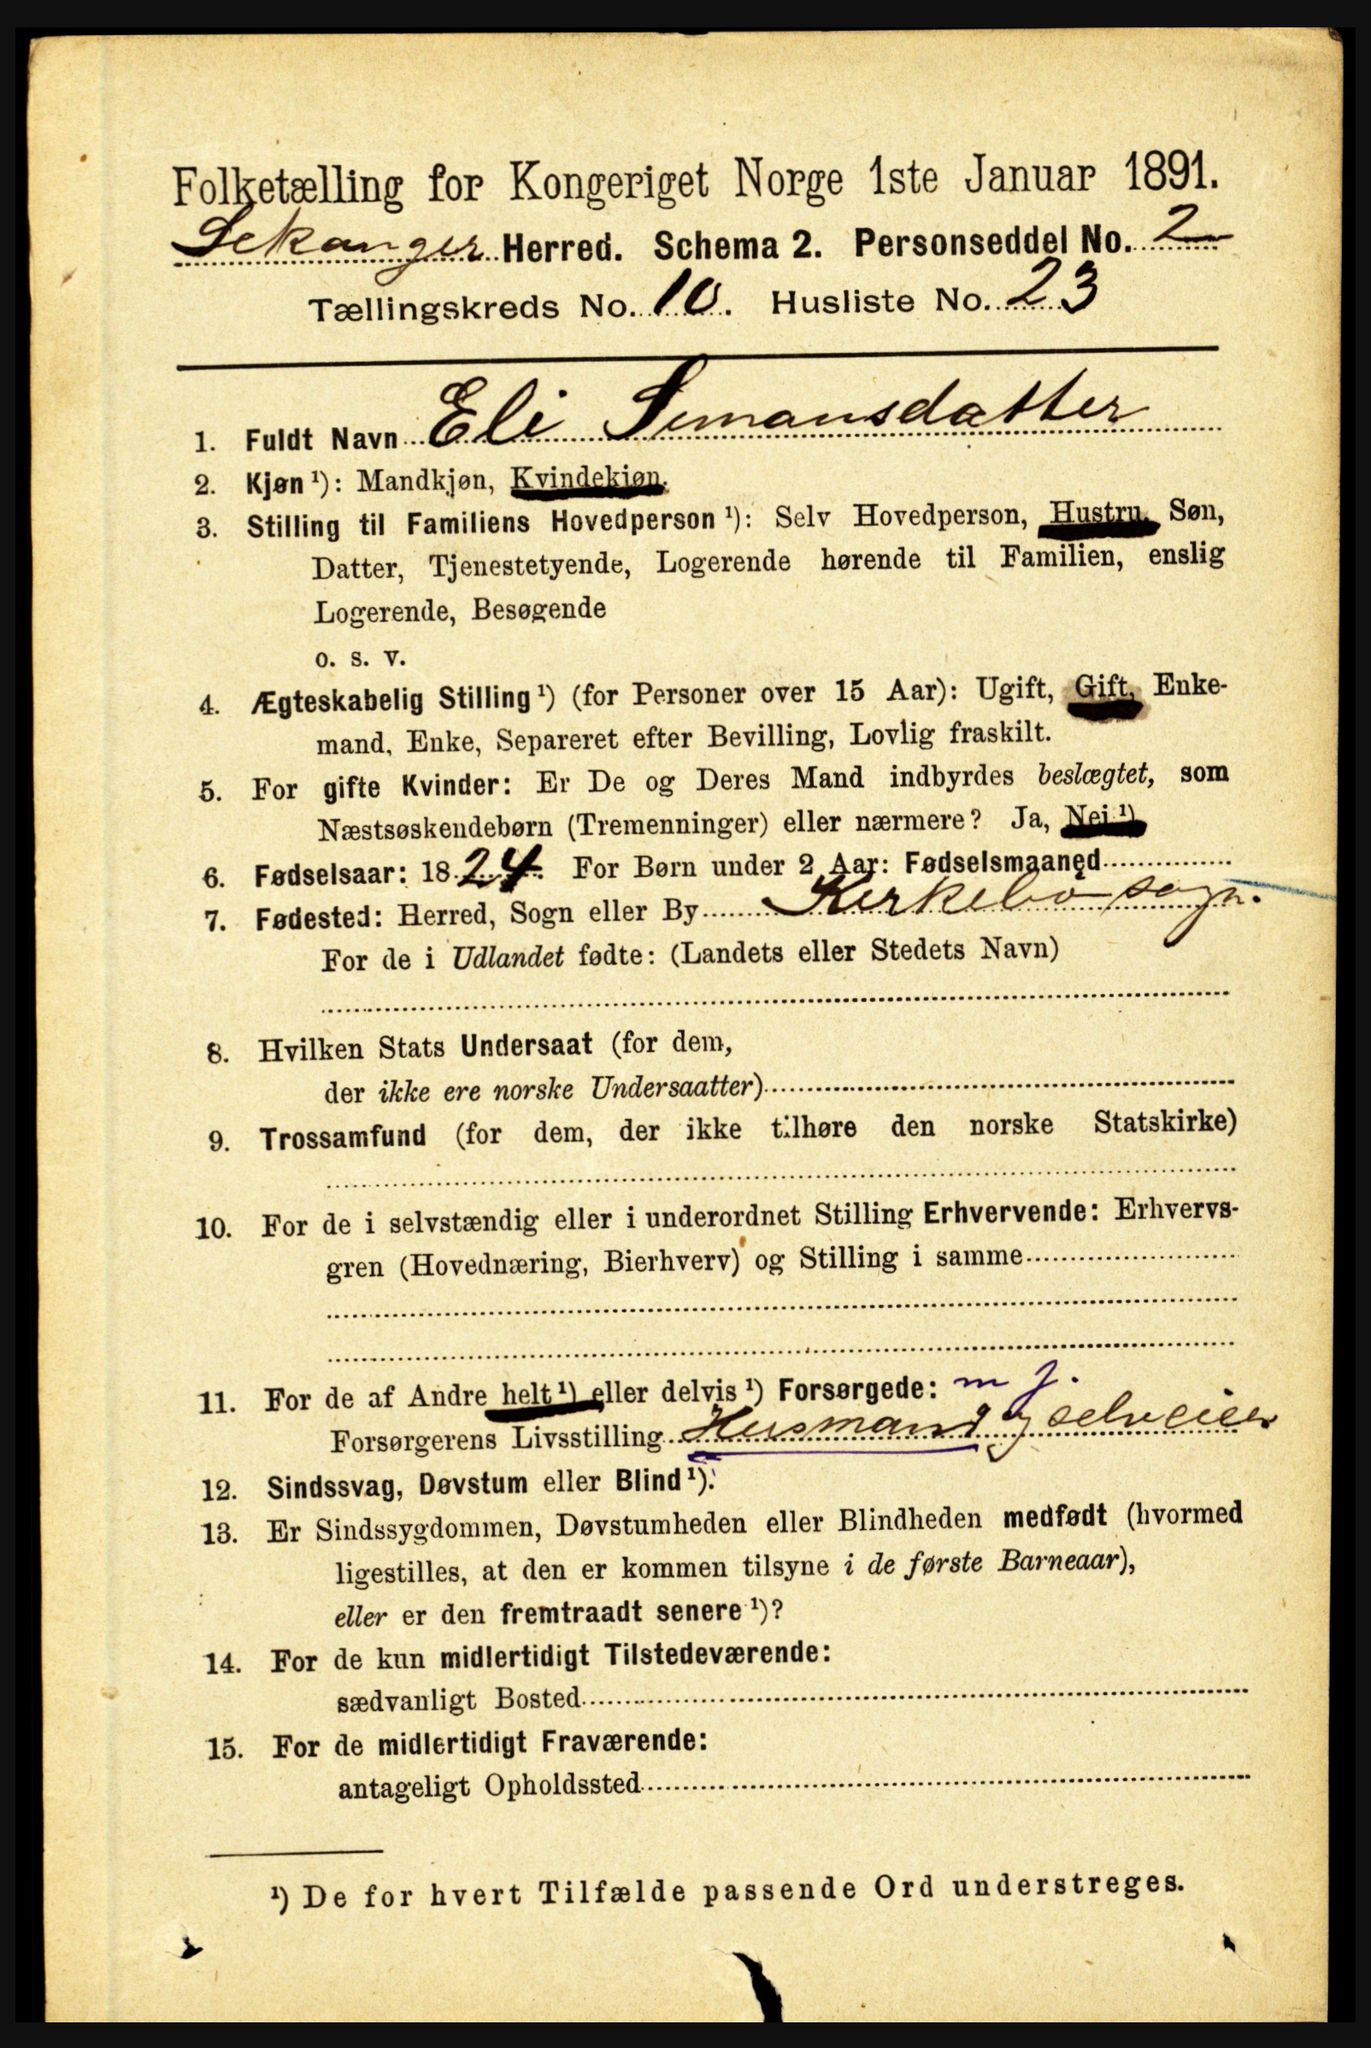 Folketælling for Kongeriget Norge 1ste Januar 1891.
Lekanger Herred. Schema 2. Personseddel No. 2
Tællingskreds No. 10. Husliste No. 23
1. Fuldt Navn Eli Simonsdatter
2. Kjøn ¹): Mandkjøn, Kvindekjøn.
3. Stilling til Familiens Hovedperson ¹): Selv Hovedperson, Hustru, Søn,
Datter, Tjenestetyende, Logerende hørende til Familien, enslig
Logerende, Besøgende
o. s. v.
4. Ægteskabelig Stilling ¹) (for Personer over 15 Aar): Ugift, Gift, Enke-
mand, Enke, Separeret efter Bevilling, Lovlig fraskilt.
5. For gifte Kvinder: Er De og Deres Mand indbyrdes beslægtet, som
Næstsøskendebørn (Tremenninger) eller nærmere? Ja, Nei ¹)
6. Fødselsaar: 1824. For Børn under 2 Aar: Fødselsmaaned
7. Fødested: Herred, Sogn eller By Kirkebo sogn.
For de i Udlandet fødte: (Landets eller Stedets Navn)
8. Hvilken Stats Undersaat (for dem,
der ikke ere norske Undersaatter)
9. Trossamfund (for dem, der ikke tilhøre den norske Statskirke)
10. For de i selvstændig eller i underordnet Stilling Erhvervende: Erhvervs-
gren (Hovednæring, Bierhverv) og Stilling i samme
11. For de af Andre helt ¹) eller delvis ¹) Forsørgede: m j.
Forsørgerens Livsstilling Husmand og selveier
12. Sindssvag, Døvstum eller Blind ¹).
13. Er Sindssygdommen, Døvstumheden eller Blindheden medfødt (hvormed
ligestilles, at den er kommen tilsyne i de første Barneaar),
eller er den fremtraadt senere ¹)?
14. For de kun midlertidigt Tilstedeværende:
sædvanligt Bosted
15. For de midlertidigt Fraværende:
antageligt Opholdssted
¹) De for hvert Tilfælde passende Ord understreges.